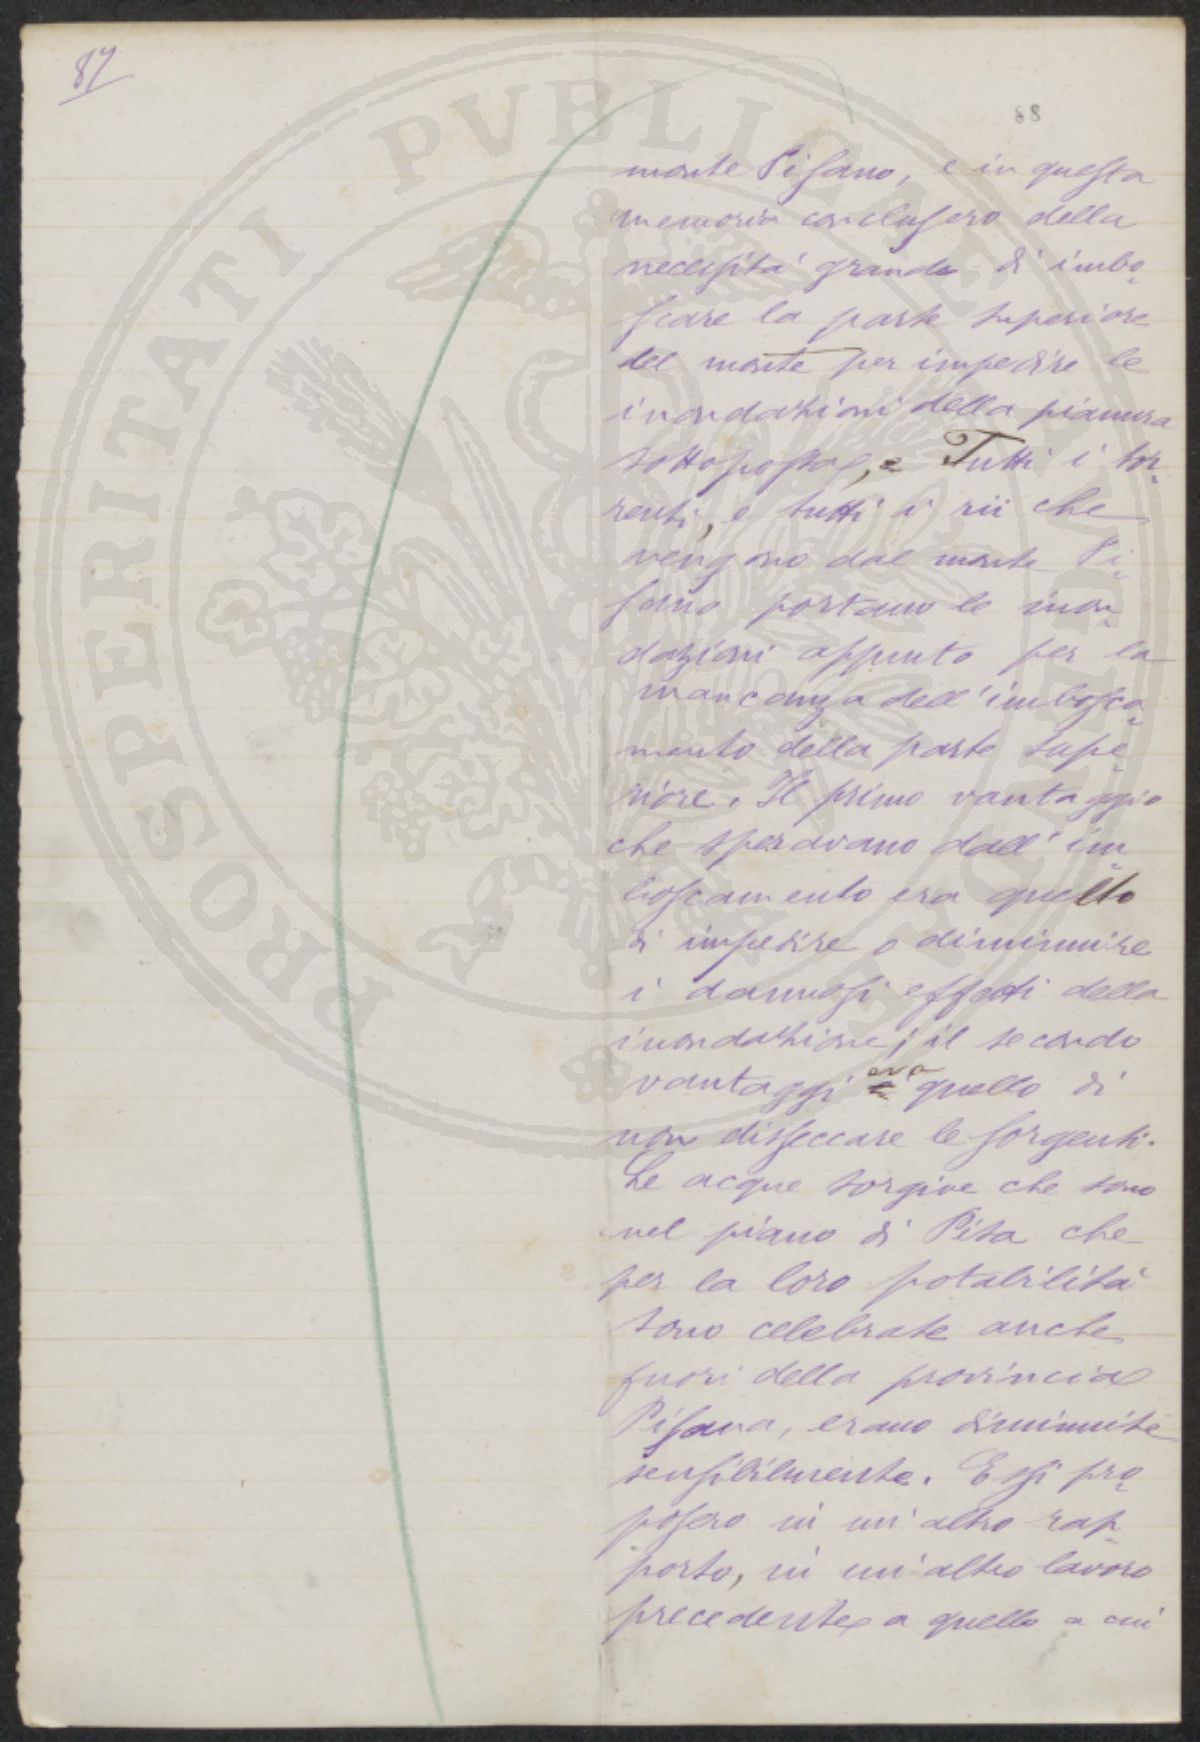 87
88
monte Pisano, e in questa
memoria conclusero della
necessità grande di imbo-
scare la parte superiore
del monte per impedire le
inondazioni della pianura
sottoposta, e Tutti i tor-
renti, e tutti i rii che
vengono dal monte Pi-
sano portano le inon-
dazioni appunto per la
mancanza dell'imbosca-
mento della parte supe-
riore. Il primo vantaggio
che speravano dall'im-
boscamento era quello
di impedire o diminuire
i dannosi effetti della
inondazione; il secondo
vantaggi era quello di
non disseccare le sorgenti.
Le acque sorgive che sono
nel piano di Pisa che
per la loro potabilità
sono celebrate anche
fuori della provincia
Pisana, erano diminuite
sensibilmente. Essi pro-
posero in un'altro rap-
porto, in un'altro lavoro
precedente a quello a cui
PROSPERITATI PVBLICAE AVGENDAE